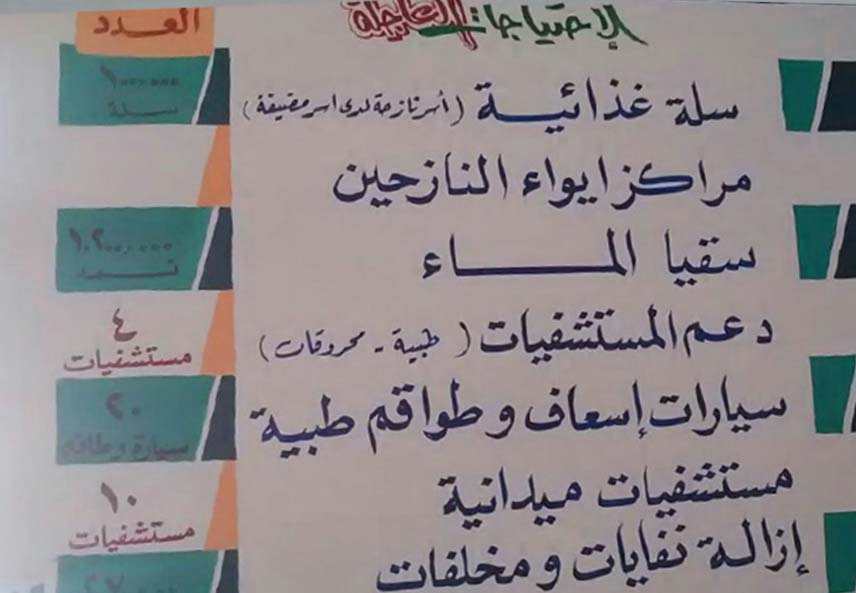 الإحتياجات العاجلة
العدد
سلة غذائية (أسر نازحة لدى اسر مضيفة)
١٠٠,٠٠٠
سلة
مراكز ايواء النازحين
سقيا الماء
١,٢٠٠,٠٠٠
نسمه
دعم المستشفيات (طبية - محروقات)
٤
مستشفيات
سيارات إسعاف وطواقم طبية
٢٠
سيارة وطاقم
مستشفيات ميدانية
١٠
مستشفيات
إزالة نفايات ومخلفات